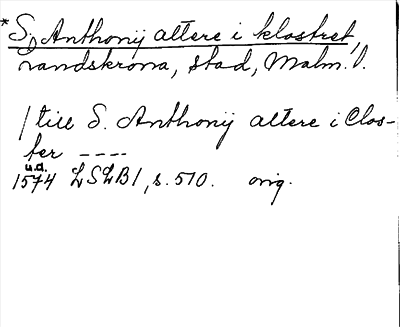 *S. Anthonij altere i klostret,
Landskrona, stad, Malm. l.
/till S. Anthonij altere i Clos-
ter ----
u.d.
1574 LSLB1, s. 510. orig.